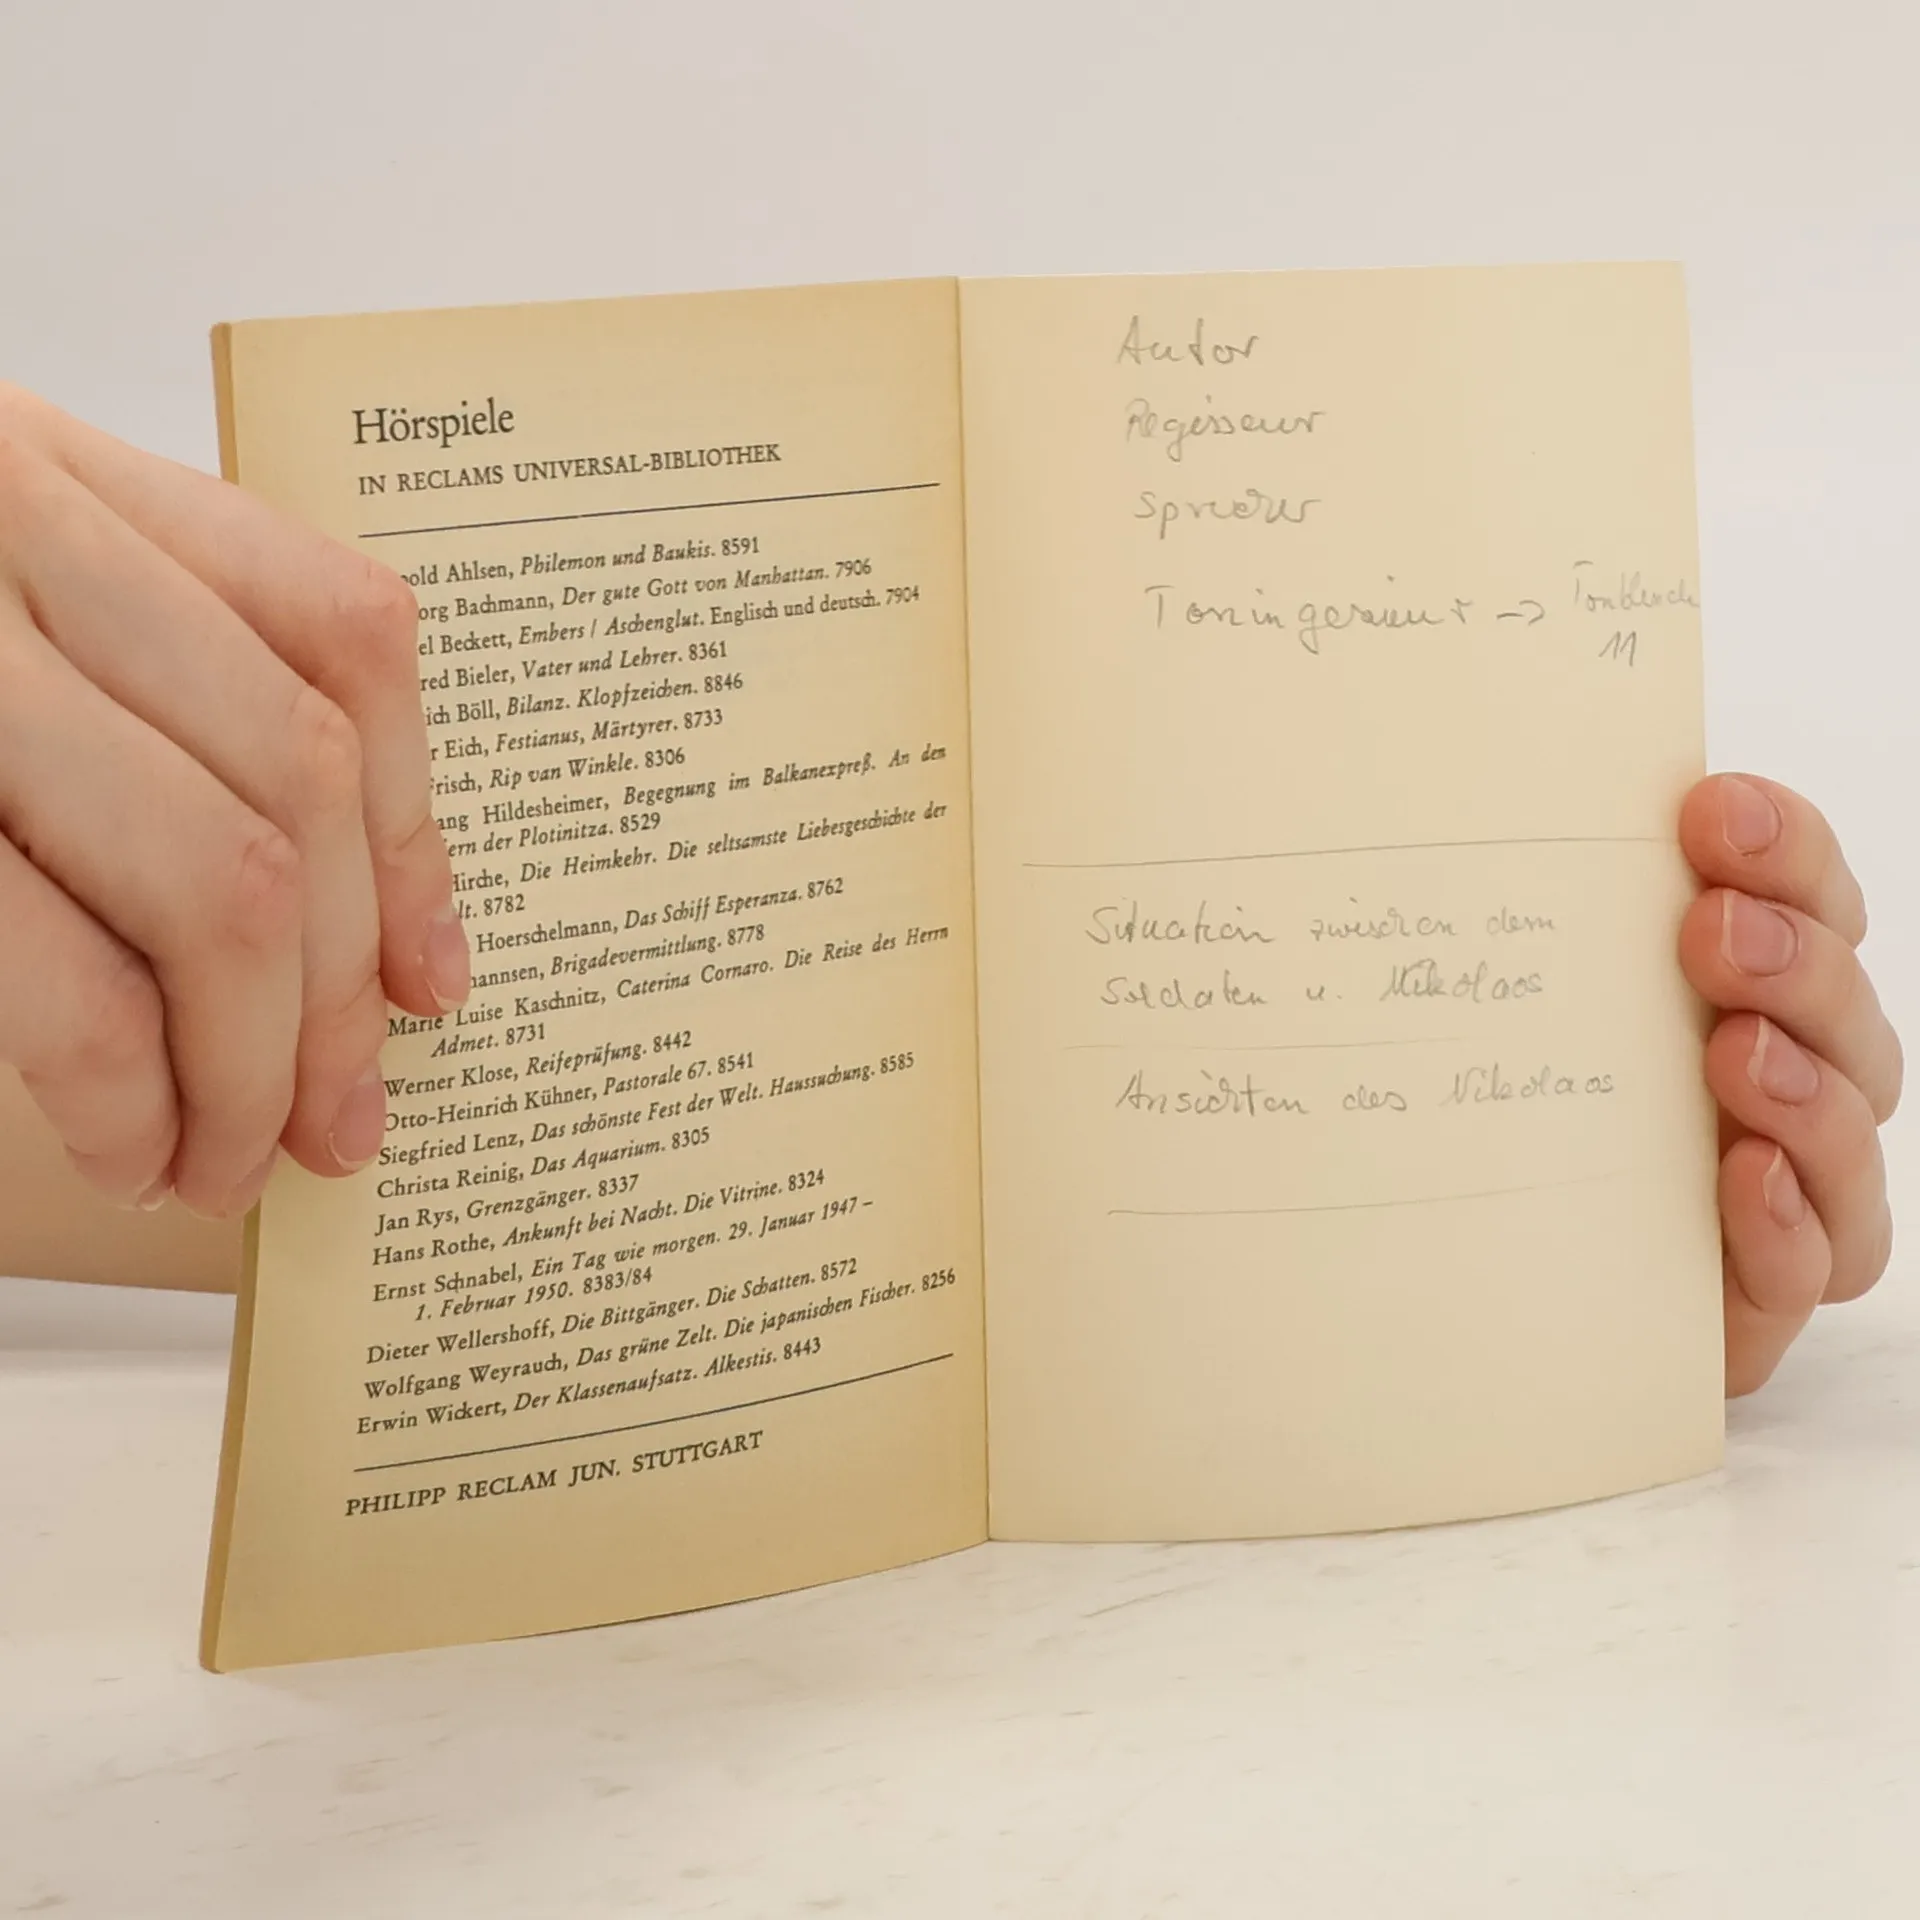 Hörspiele
IN RECLAMS UNIVERSAL-BIBLIOTHEK
Ahlsen, Philemon und Baukis. 8591
Bachmann, Der gute Gott von Manhattan. 7906
Beckett, Embers / Aschenglut. Englisch und deutsch. 7904
Bieler, Vater und Lehrer. 8361
Böll, Bilanz. Klopfzeichen. 8846
Eich, Festianus, Märtyrer. 8733
risch, Rip van Winkle. 8306
ang Hildesheimer, Begegnung im Balkanexpreß. An den
ern der Plotinitza. 8529
Hirche, Die Heimkehr. Die seltsamste Liebesgeschichte der
lt. 8782
Hoerschelmann, Das Schiff Esperanza. 8762
hannsen, Brigadevermittlung. 8778
Marie Luise Kaschnitz, Caterina Cornaro. Die Reise des Herrn
Admet. 8731
Werner Klose, Reifeprüfung. 8442
Otto-Heinrich Kühner, Pastorale 67. 8541
Siegfried Lenz, Das schönste Fest der Welt. Haussuchung. 8585
Christa Reinig, Das Aquarium. 8305
Jan Rys, Grenzgänger. 8337
Hans Rothe, Ankunft bei Nacht. Die Vitrine. 8324
Ernst Schnabel, Ein Tag wie morgen. 29. Januar 1947 –
1. Februar 1950. 8383/84
Dieter Wellershoff, Die Bittgänger. Die Schatten. 8572
Wolfgang Weyrauch, Das grüne Zelt. Die japanischen Fischer. 8256
Erwin Wickert, Der Klassenaufsatz. Alkestis. 8443
PHILIPP RECLAM JUN. STUTTGART
Autor
Regisseur
Sprecher
Toningenieur -> Tonblende
11
Situation zwischen dem
Soldaten u. Nikolaos
Ansichten des Nikolaos